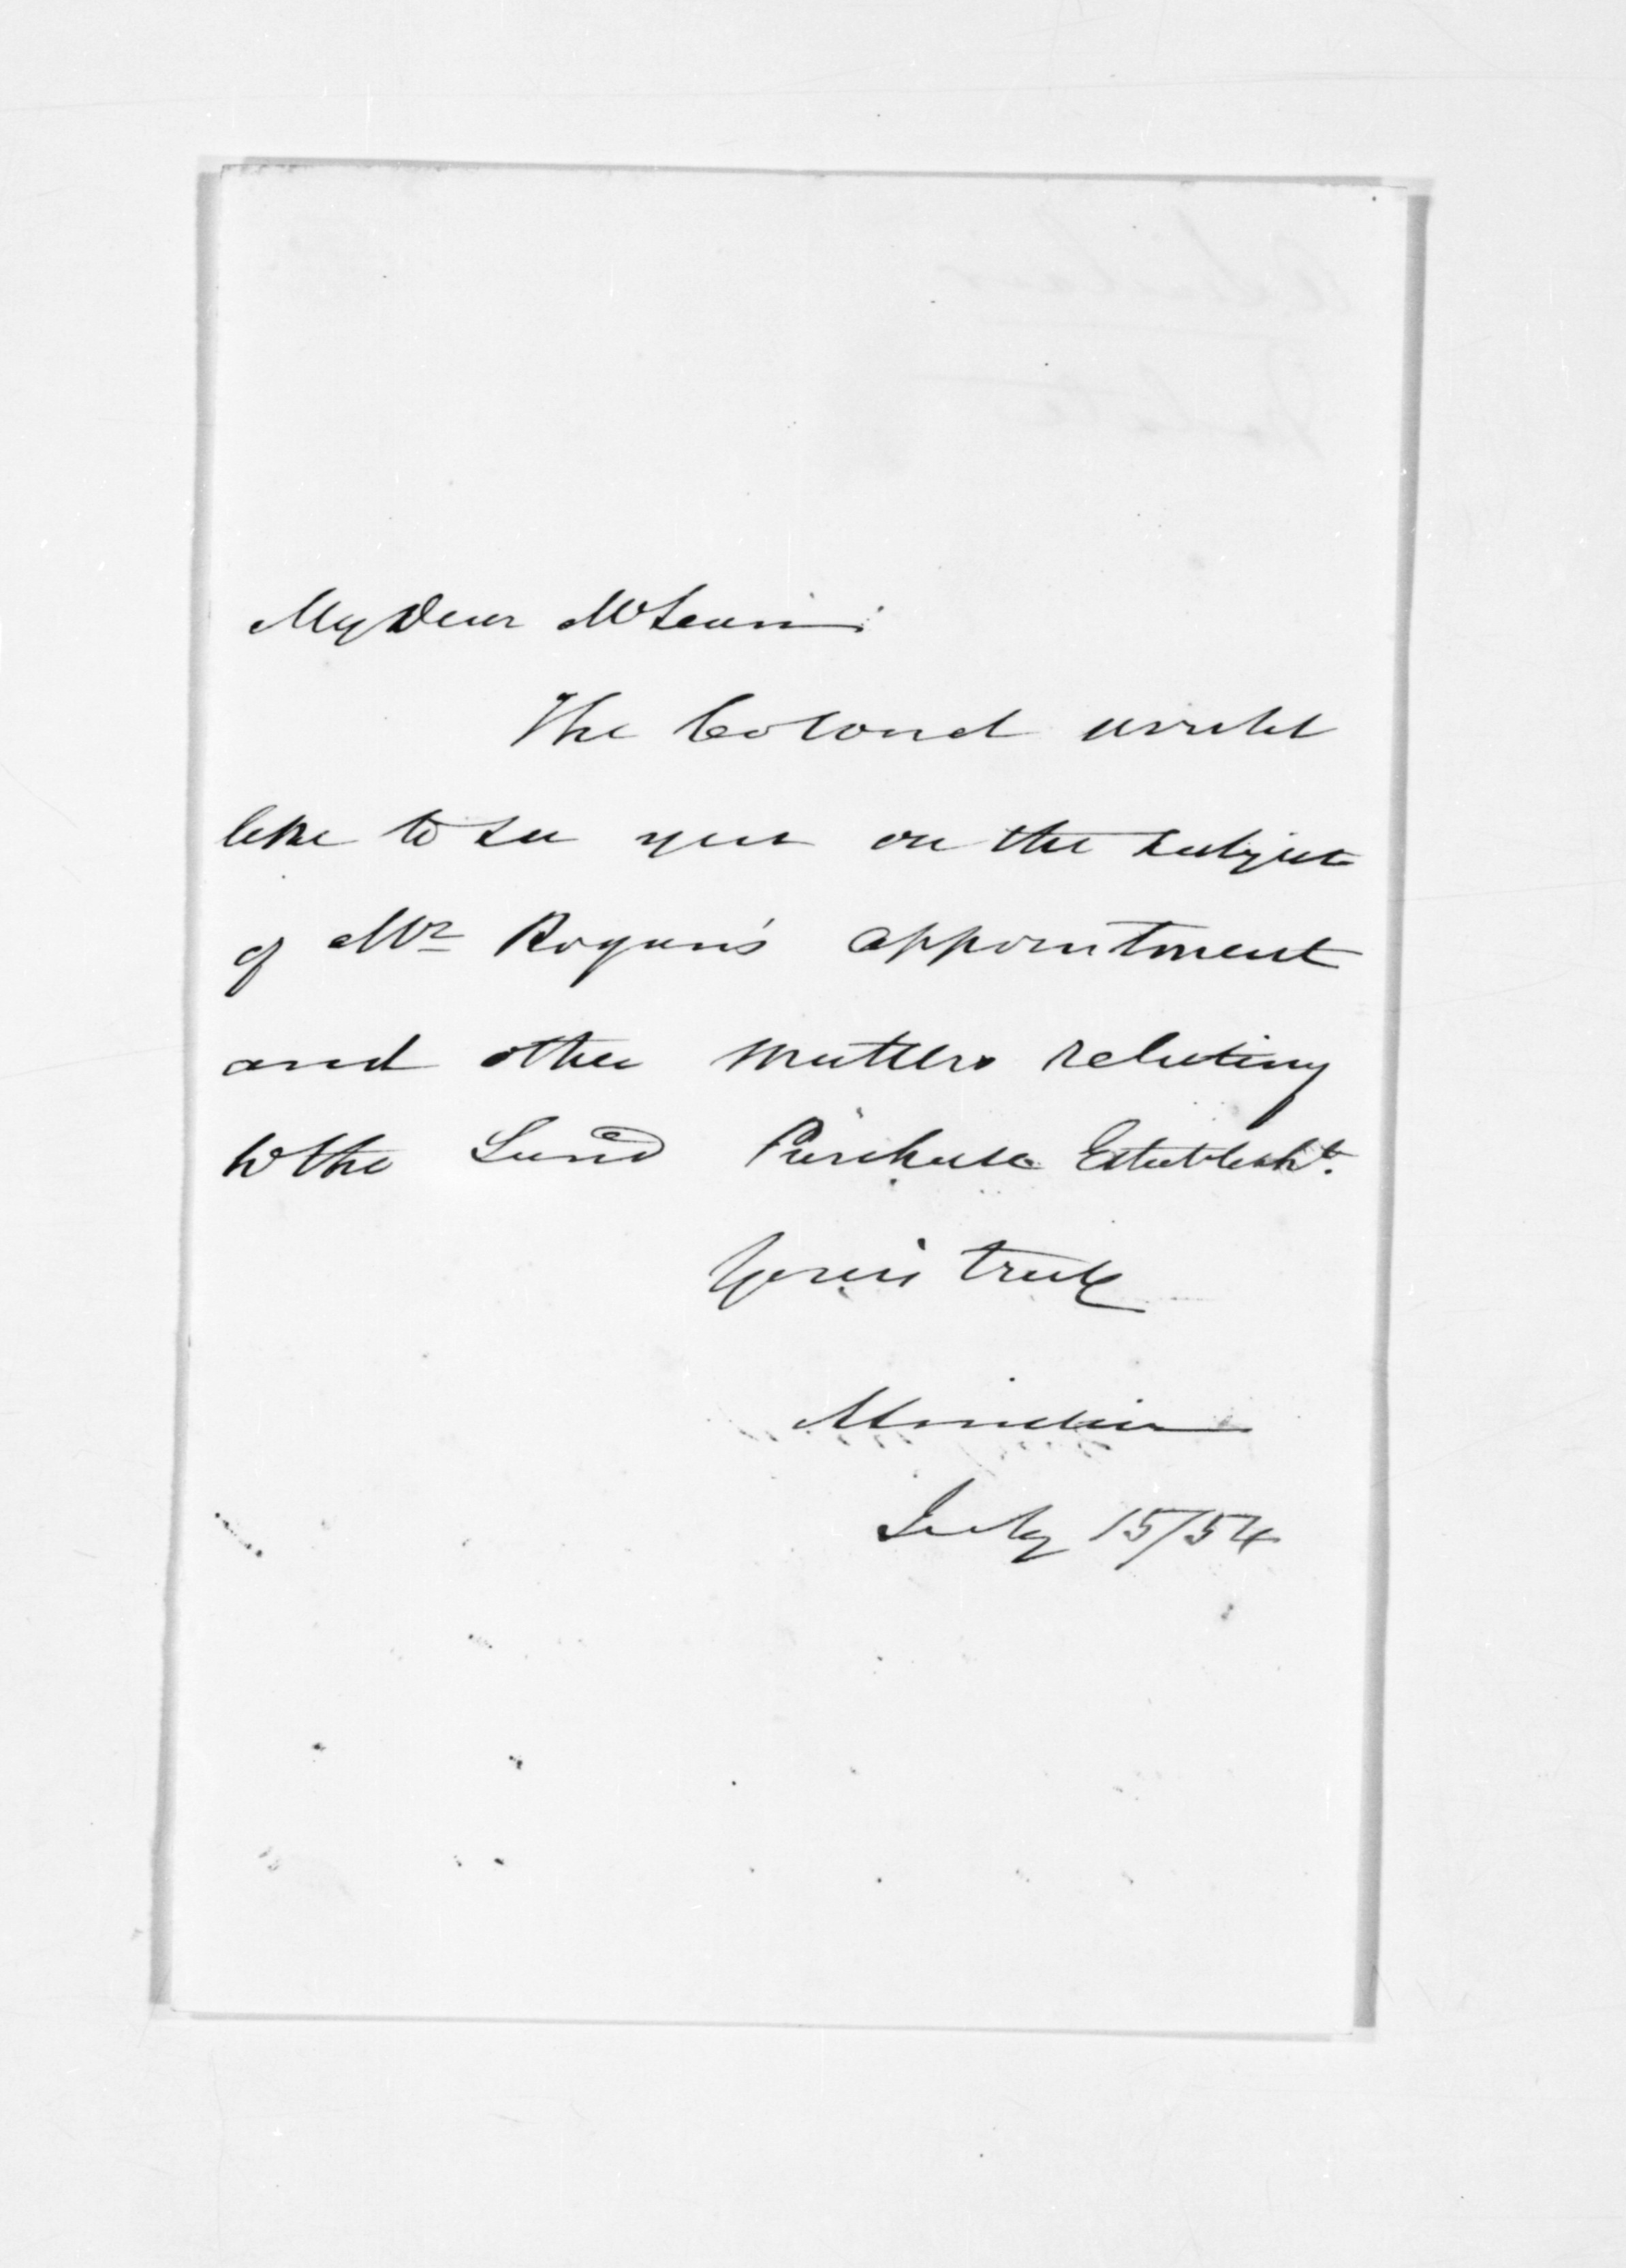 My Dear McLean
The Colonel would
like to see you on the subject
of Mr Rogan's appointment
and other matters relating
to the Land Purchase Establisht.
Yours truly
ASinclair
July 15/54